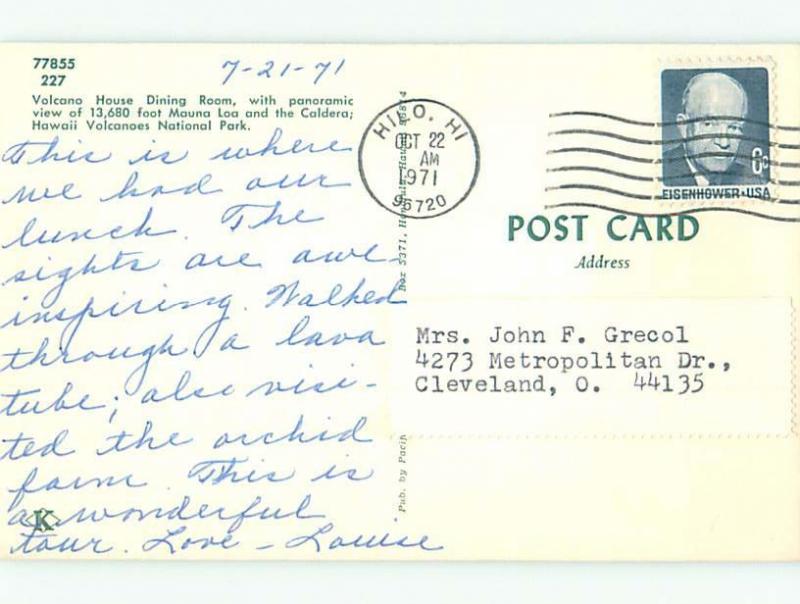 77855
227
Volcano House Dining Room, with panoramic
view of 13,680 foot Mauna Loa and the Caldera;
Hawaii Volcanoes National Park.
7-21-71
This is where
we had our
lunch. The
sights are awe-
inspiring. Walked
through a lava
tube; also visi-
ted the orchid
farm. This is
a wonderful
tour. Love - Louise
K
Pub. by Pacif
Box 5371, Honolulu, Hawaii 96814
HILO, HI
OCT 22
AM
1971
96720
6c
EISENHOWER·USA
POST CARD
Address
Mrs. John F. Grecol
4273 Metropolitan Dr.,
Cleveland, O. 44135